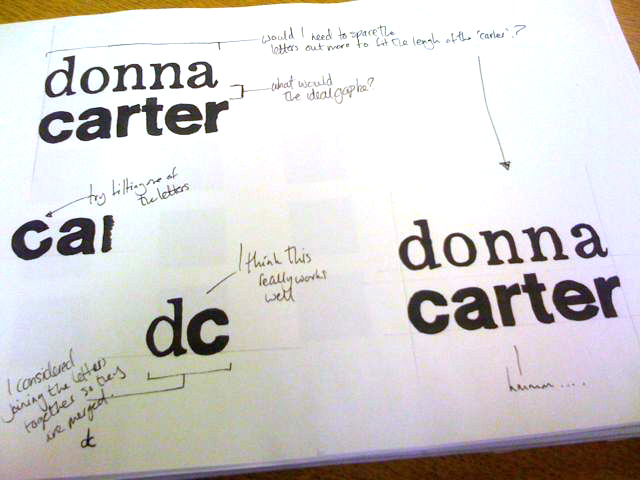 would I need to space the
letters out more to fit the lengh of the 'carter'.?
donna
carter
what would
the ideal gap be?
try tilting one of
the letters
cal
I think this
really works
well
donna
carter
dc
I considered
joining the letters
together so they
are merged.
dc
hmmm....